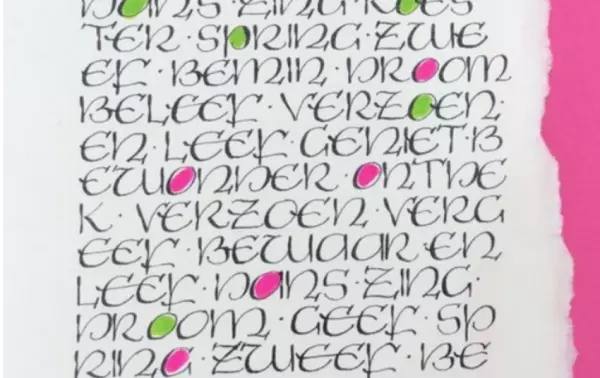 DANS·ZING·KOES
TER·SPRING·ZWE
EF·BEMIN·DROOM
BELEEF·VERZOEN·
EN·LEEF·GENIET·B
EWONDER·ONTDE
K·VERZOEN·VERG
EEF·BEWAAR·EN
LEEF·DANS·ZING·
DROOM·GEEF·SP
RING·ZWEEF·BE